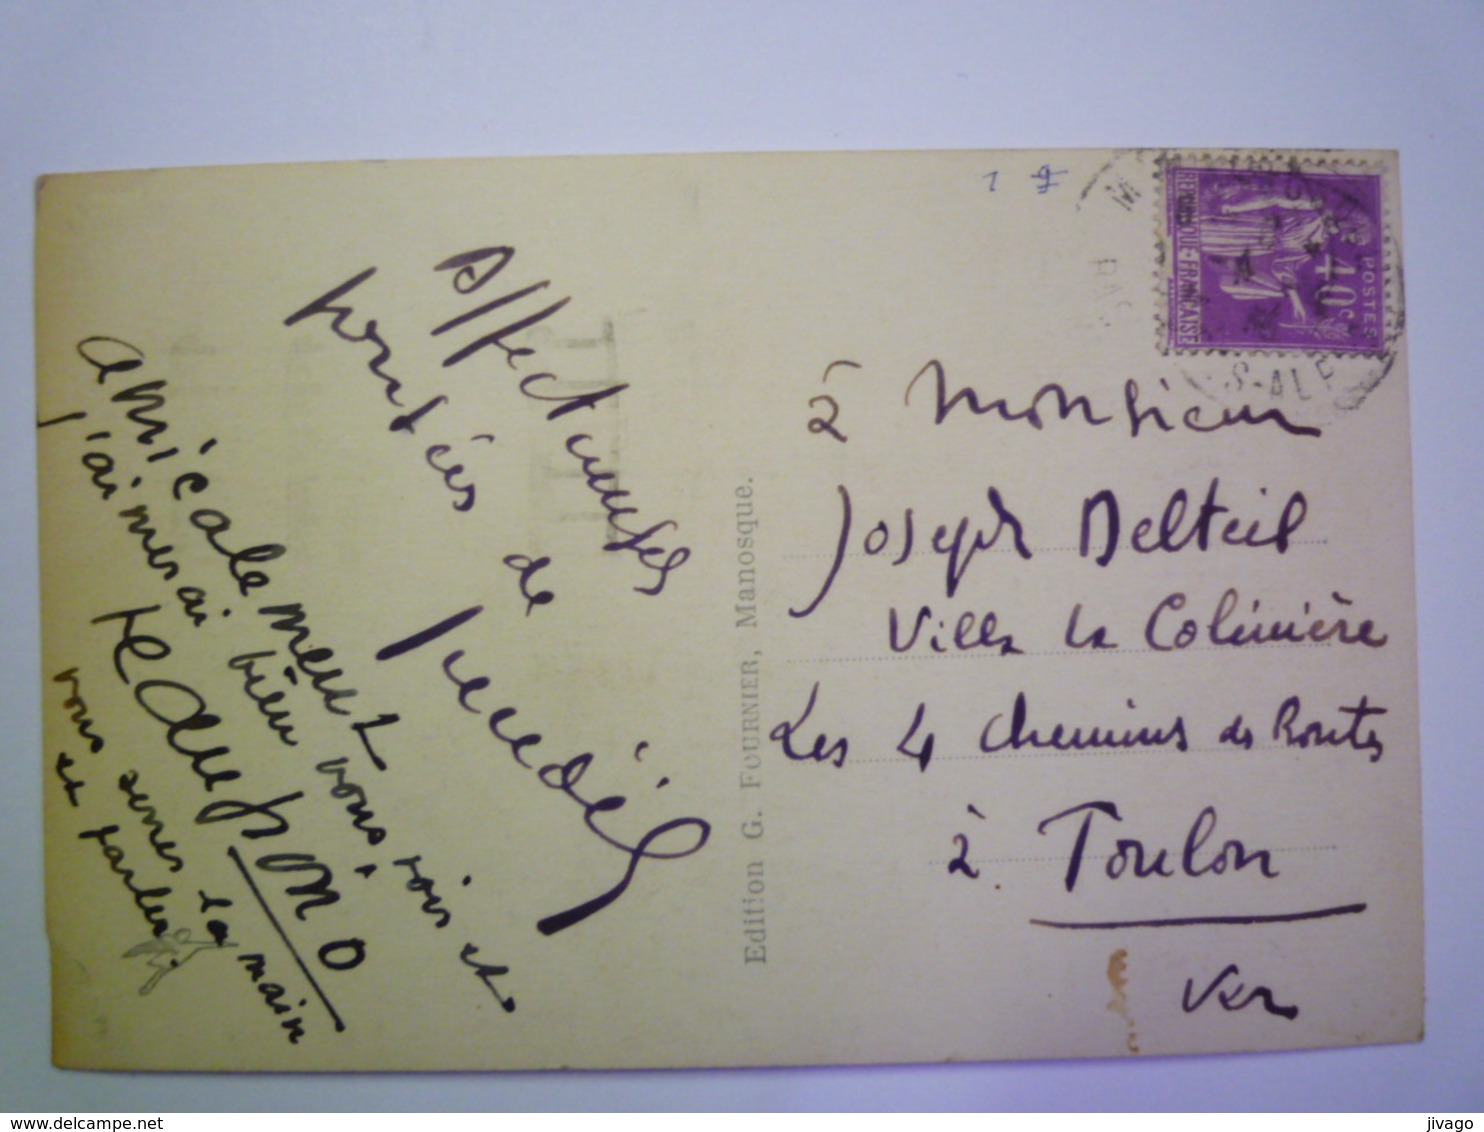 Affectueuses
pensées de
amicalement
j'aimerai bien vous voir et
vous serrer la main
et parler
Edition G. FOURNIER, Manosque.
1
REPUBLIQUE FRANÇAISE
POSTES
40c
S-ALP
à Monsieur
Joseph Delteil
Villa la Colinière
Les 4 chemins des Routes
à Toulon
Var
jivago